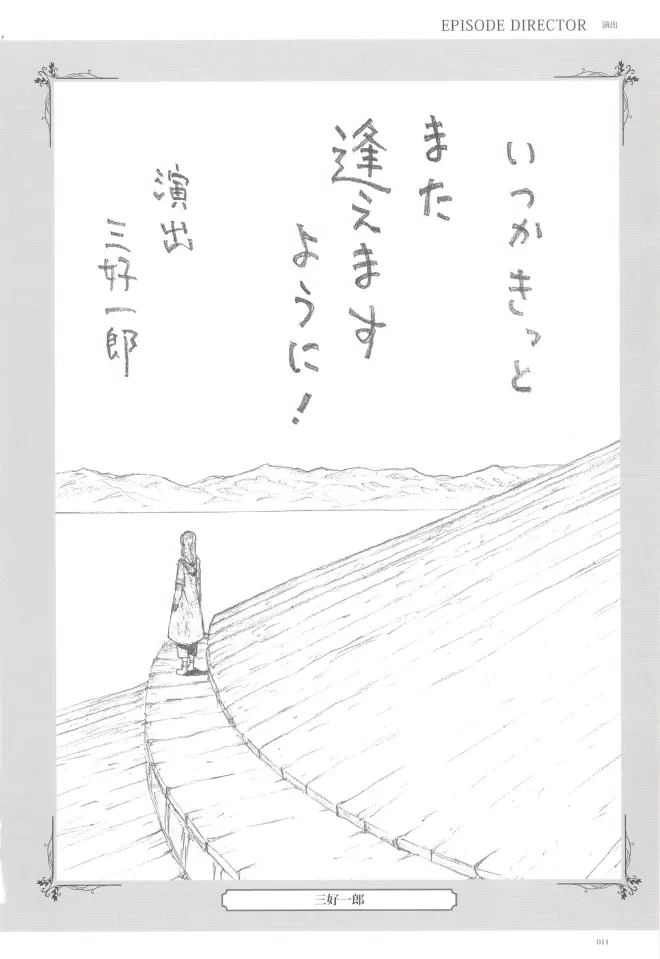 EPISODE DIRECTOR 演出
いつかきっと
また
逢えます
ように!
演出
三好一郎
三好一郎
011